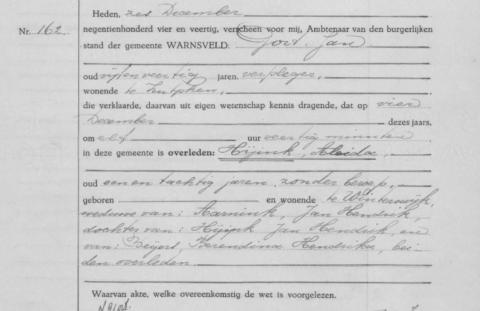 Heden, zes December
Nr. 162. negentienhonderd vier en veertig, verscheen voor mij, Ambtenaar van den burgerlijken
stand der gemeente WARNSVELD. Gort, Jan
oud vijfenveertig jaren, verpleger,
wonende te Zutphen,
die verklaarde, daarvan uit eigen wetenschap kennis dragende, dat op vier
December dezes jaars,
om elf uur veertig minuten
in deze gemeente is overleden: Hijink, Aleida,
oud een en tachtig jaren, zonder beroep,
geboren en wonende te Winterswijk,
weduwe van: Hamink, Jan Hendrik,
dochter van: Hijink Jan Hendrik, en
van: Beijers, Berendina Hendrika, bei-
den overleden
Waarvan akte, welke overeenkomstig de wet is voorgelezen.